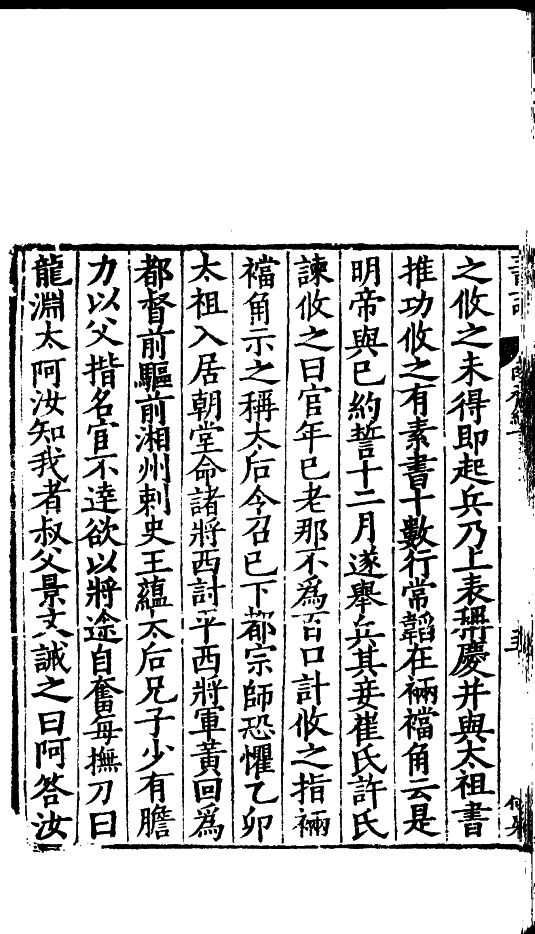 之攸之未得即起兵乃上表稱慶并與太祖書
推功攸之有素書十數行常韜在裲襠角云是
明帝與已約誓十二月遂舉兵其妾崔氏許氏
諫攸之曰官年已老那不爲百口計攸之指裲
襠角示之稱太后令召已下都宗師恐懼乙卯
太祖入居朝堂命諸將西討平西將軍黃回爲
都督前驅前湘州刺史王蘊太后兄子少有膽
力以父揩名宦不達欲以將途自奮每撫刀曰
龍淵太阿汝知我者叔父景文誡之曰阿答汝